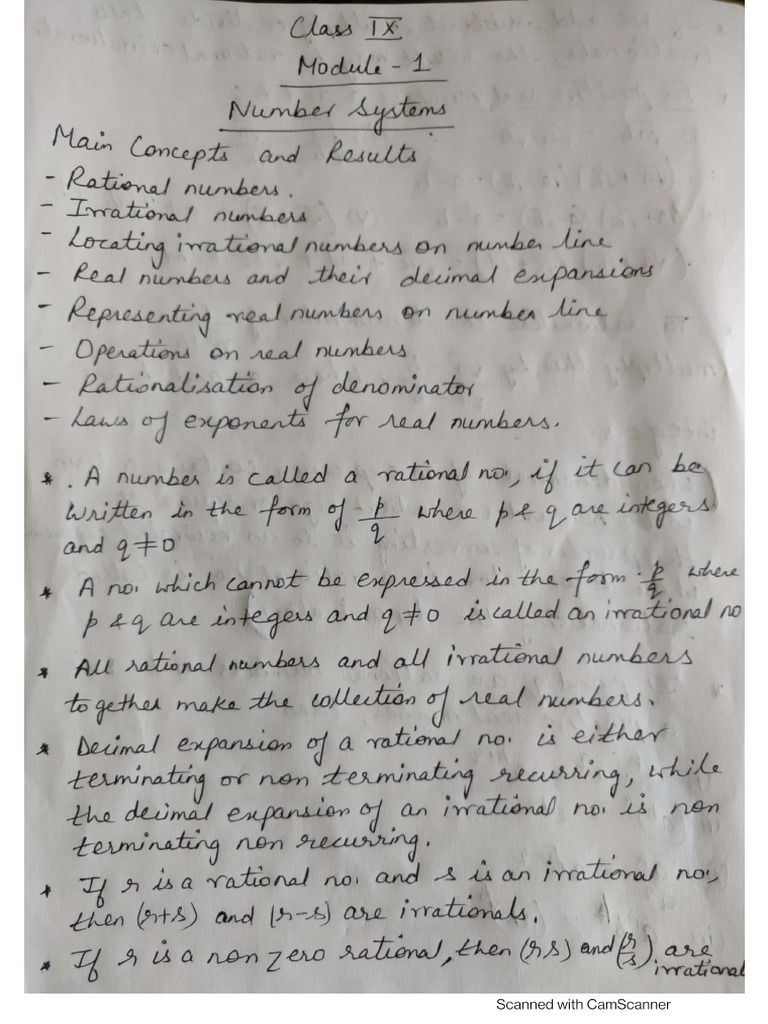 Class IX
Module - 1
Number Systems
Main Concepts and Results
- Rational numbers.
- Irrational numbers
- Locating irrational numbers on number line
- Real numbers and their decimal expansions
- Representing real numbers on number line
- Operations on real numbers
- Rationalisation of denominator
- Laws of exponents for real numbers.
* . A number is called a rational no., if it can be
written in the form of p/q where p & q are integers
and q ≠ 0
* A no. which cannot be expressed in the form p/q where
p & q are integers and q ≠ 0 is called an irrational no
* All rational numbers and all irrational numbers
together make the collection of real numbers.
* Decimal expansion of a rational no. is either
terminating or non terminating recurring, while
the decimal expansion of an irrational no. is non
terminating non recurring.
* If r is a rational no. and s is an irrational no.,
then (r+s) and (r-s) are irrationals.
* If r is a non zero rational, then (rs) and (r/s) are
irrational
Scanned with CamScanner